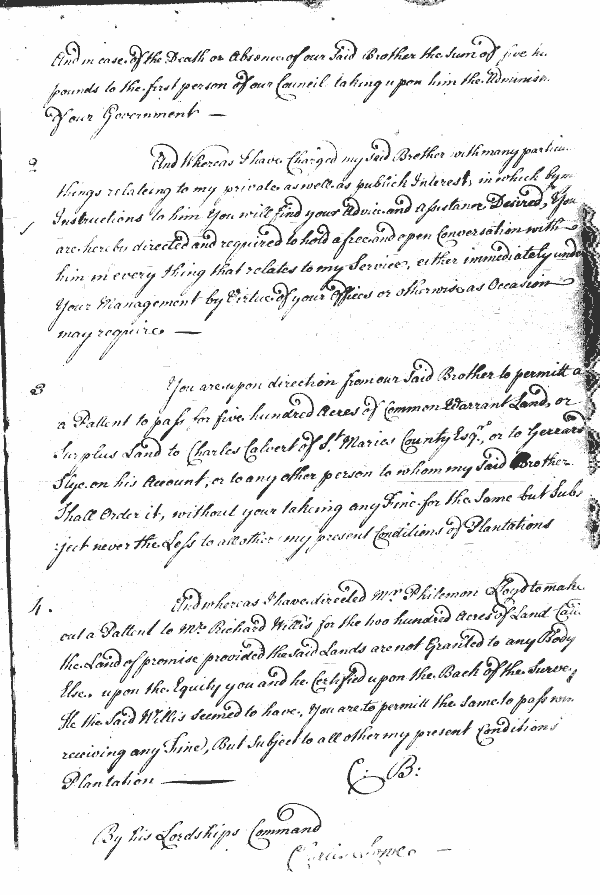 And in case of the Death or Absence of our Said Brother the Sum of five hu
pounds to the first person of our Council taking upon him the Adminis
of our Government —
2 And Whereas I have Charged my Said Brother with many particu
things relateing to my private as well as publick Interest, in which by m
Instructions to him You will find your Advice and assistance Desired, You
are hereby directed and required to hold a free and open Conversation with
him in every thing that relates to my Service, either immediately unde
Your Management by Virtue of your Offices or otherwise as Occasion
may require —
3 You are upon direction from our Said Brother to permitt a
a Pattent to pass for five hundred Acres of Common Warrant Land, or
Surplus Land to Charles Calvert of St. Maries County Esqr., or to Gerrard
Slye on his Account, or to any other person to whom my Said Brother
Shall Order it, without your taking any Fine for the Same but Subj
ject never the Less to all other my present Conditions of Plantations
4. And whereas I have directed Mr. Philemon Lloyd to make
out a Pattent to Mr. Richard Willis for the two hundred Acres of Land
the Land of promise provided the said Lands are not Granted to any Body
Else upon the Equity you and he Certified upon the Back of the Survey
He the Said Willis seemed to have, You are to permitt the Same to pass
receiving any Fine, But Subject to all other my present Conditions
Plantation —
C: B:
By his Lordships Command
Lowe —